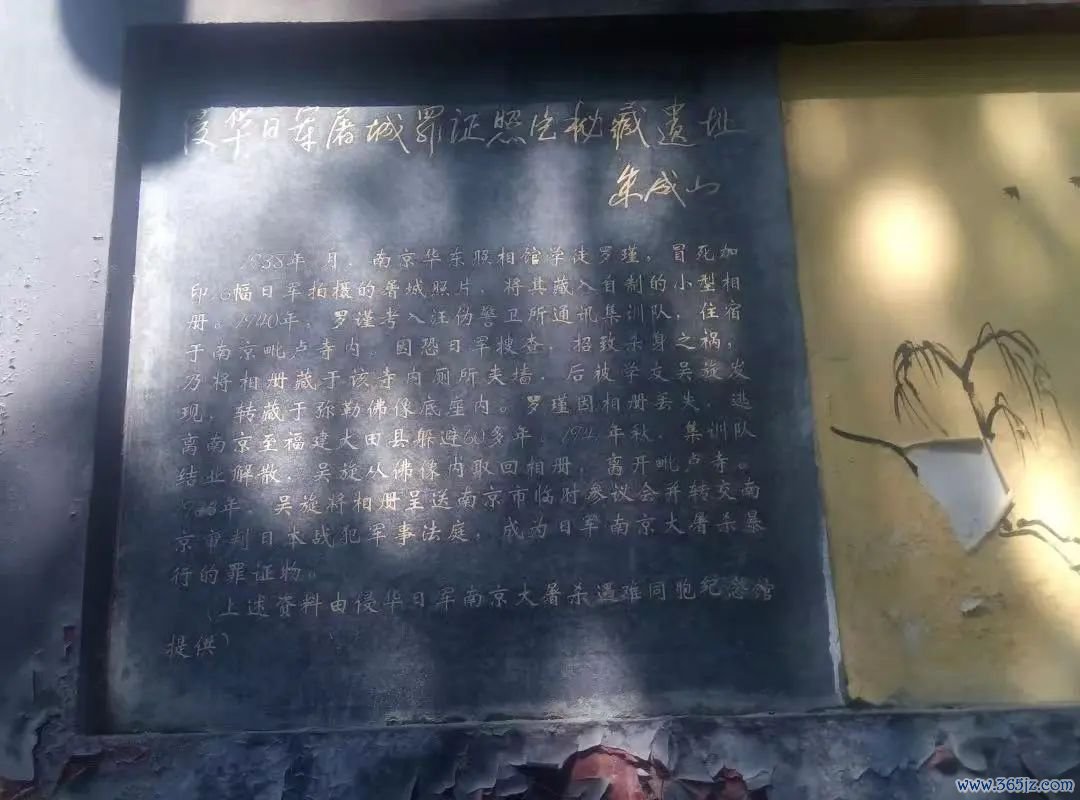 侵华日军屠城罪证照片秘藏遗址
朱成山
1938年 月，南京华东照相馆学徒罗瑾，冒死加
印 6幅日军拍摄的屠城照片，将其藏入自制的小型相
册。1940年，罗瑾考入汪伪警卫所通讯集训队，住宿
于南京毗卢寺内。因恐日军搜查，招致杀身之祸，
乃将相册藏于该寺内厕所夹墙，后被学友吴旋发
现，转藏于弥勒佛像底座内。罗瑾因相册丢失，逃
离南京至福建大田县躲避60多年。1941年秋，集训队
结业解散，吴旋从佛像内取回相册，离开毗卢寺。
年，吴旋将相册呈送南京市临时参议会并转交南
京审判日本战犯军事法庭，成为日军南京大屠杀暴
行的罪证物。
（上述资料由侵华日军南京大屠杀遇难同胞纪念馆
提供）
www.365jz.com